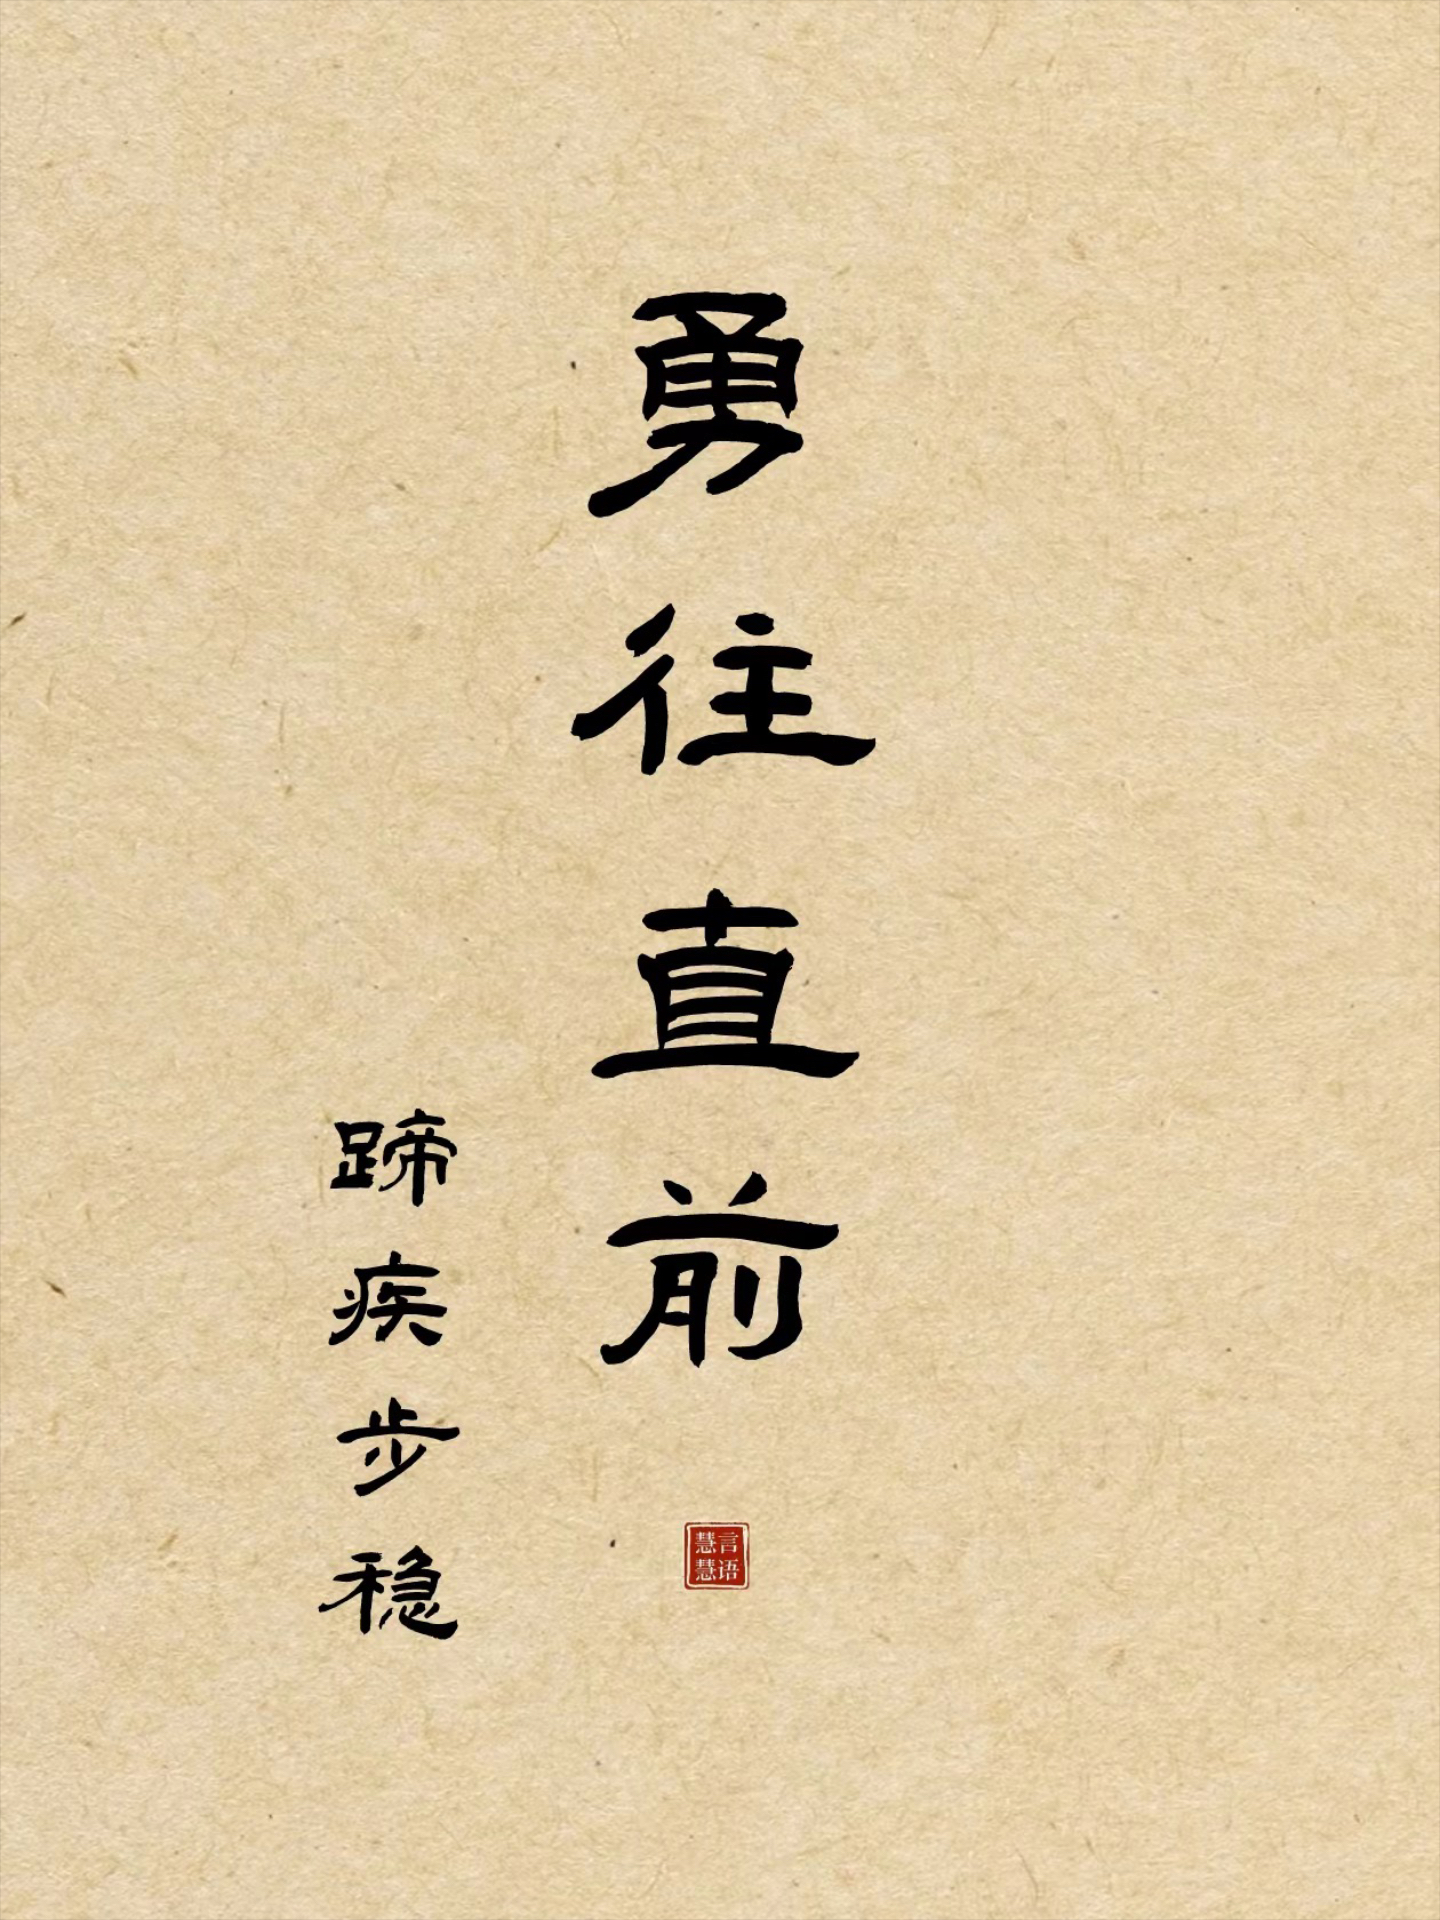 勇往直前
蹄疾步稳
言语
慧慧